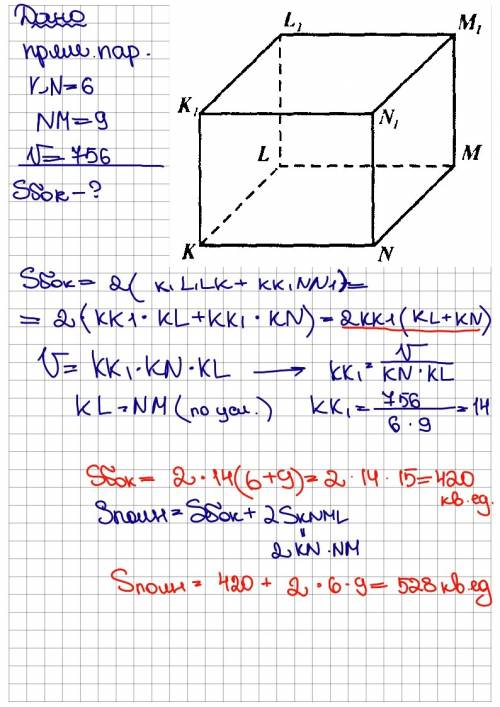 Дано
прям. пар.
KN=6
NM=9
V=756
Sбок-?
L₁ M₁
K₁ N₁
L M
K N
Sбок= 2(K₁L₁LK+KK₁NN₁)=
= 2(KK₁·KL+KK₁·KN)=2KK₁(KL+KN)
V= KK₁·KN·KL → KK₁=V/KN·KL
KL=NM(по усл.) KK₁=756/6·9=14
Sбок= 2·14(6+9)=2·14·15=420 кв.ед.
Sполн=Sбок+2SKNML
"
2KN·NM
Sполн= 420+2·6·9=528кв.ед